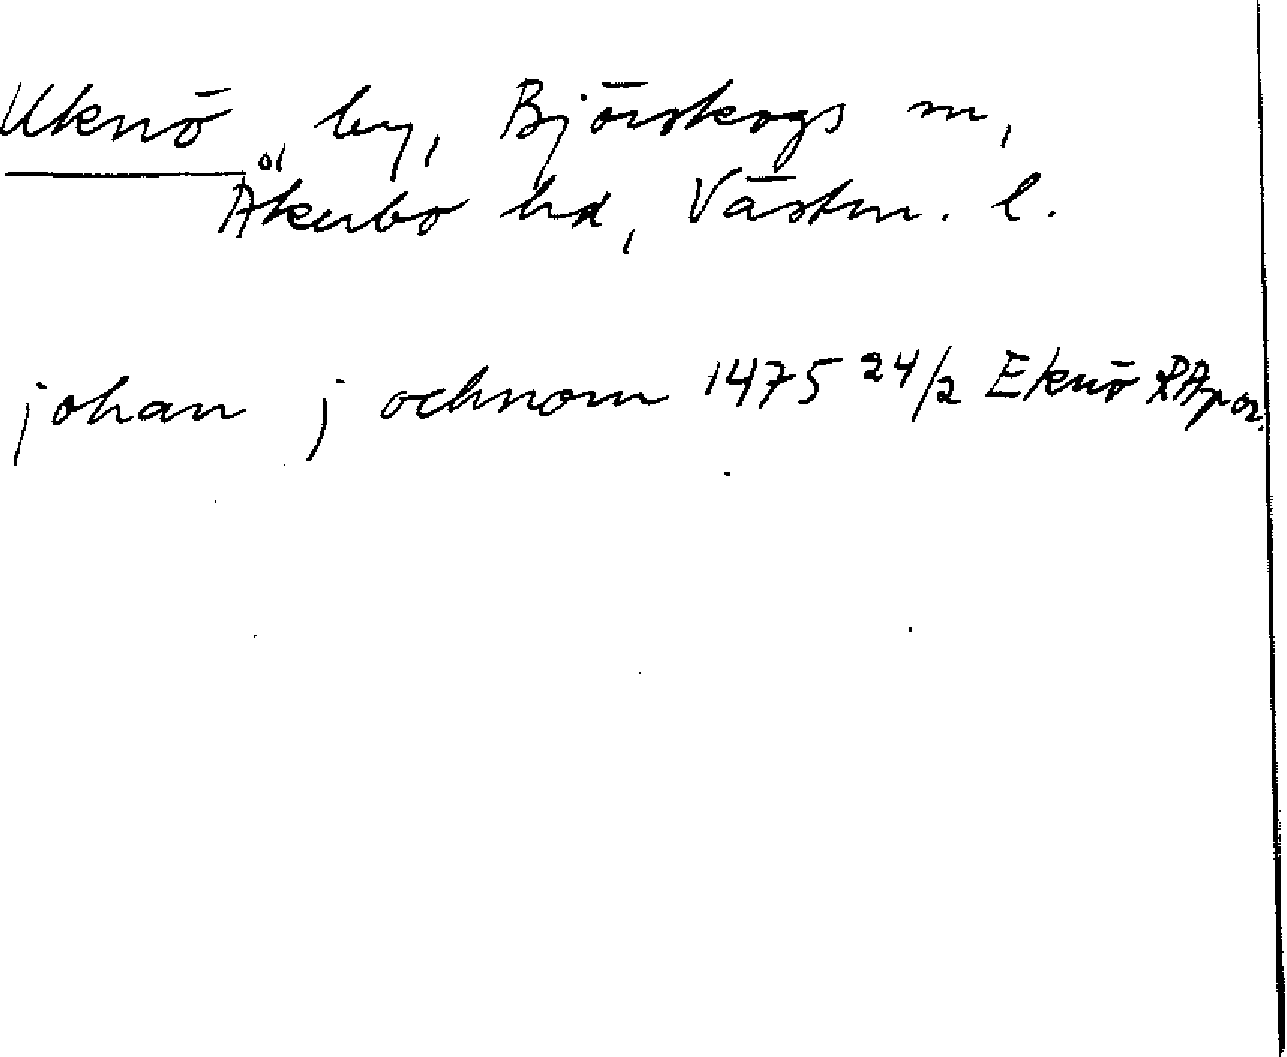 Uknö, by, Björskogs sn,
Åkerbo hd, Västm. l.
johan j ocknom 1475 24/2 Eknö RAp or.